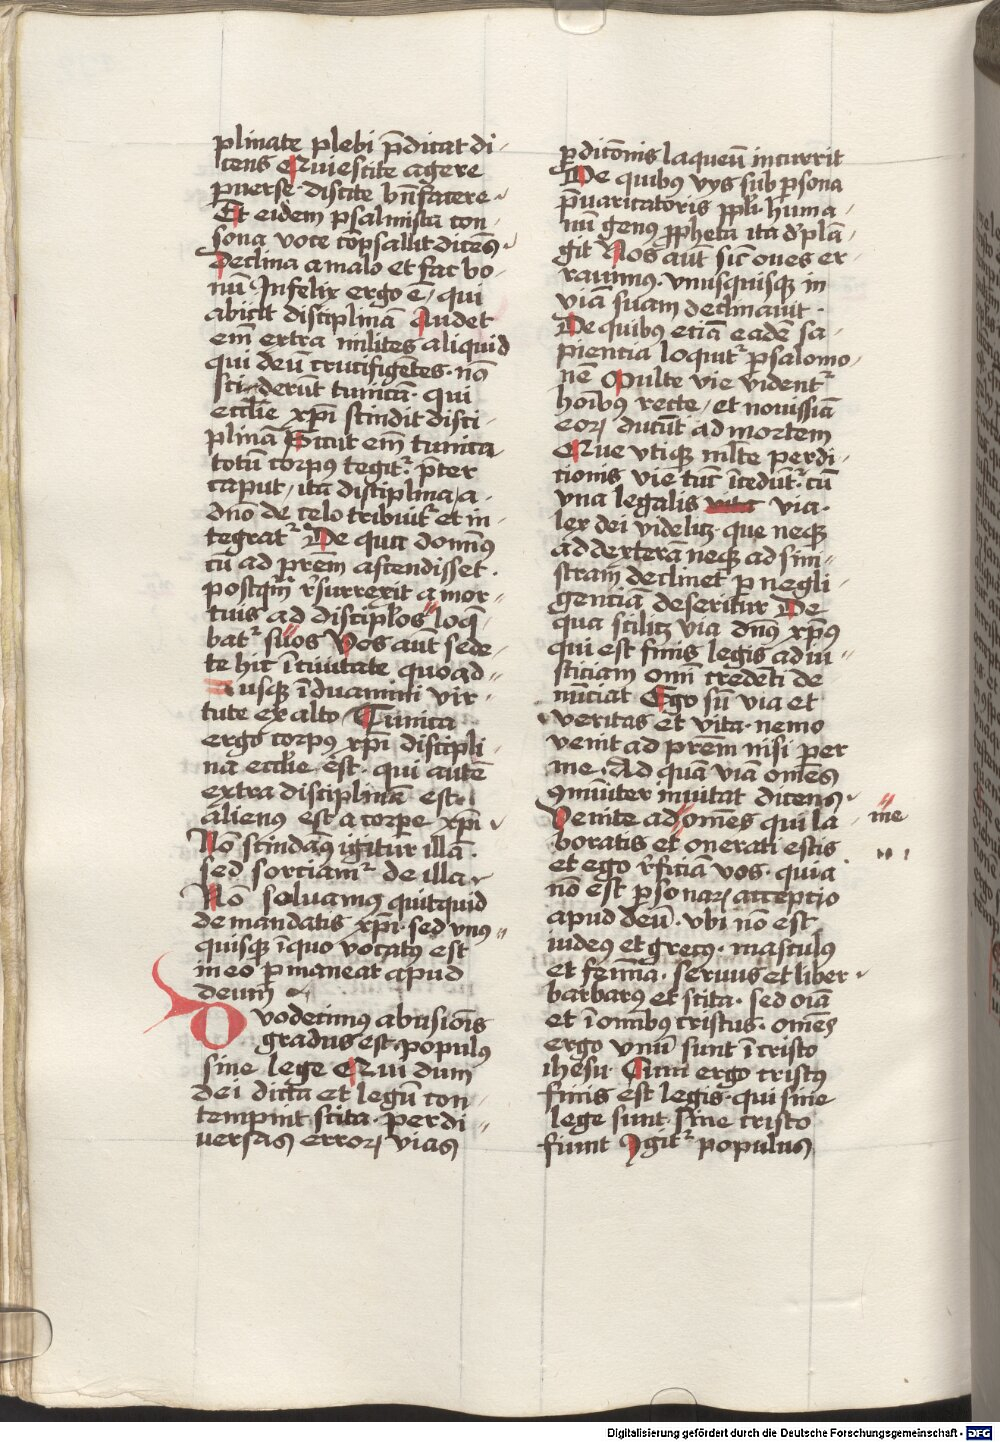 plinate plebi p̄dicat di-
cens Quiescite agere
ꝑuerse· discite bn̄facere·
Et eidem psalmista con-
sona voce cōpsallit dicens·
Declina a malo et fac bo-
nū Infelix ergo ē, qui
abicit disciplinā Audet
em̄ extra milites aliquid
qui deū crucifigētes· nō
sciderūt tunicā· qui
eccl̄ie xp̄i scindit disci-
plinā Sicut em̄ tunica
totū corpus tegit᷑· p̄ter
caput, ita disciplina, a-
dn̄o de celo tribuit᷑ et in-
tegrat᷑ De qua domin9
cū ad prēm ascendisset·
postqm̄ r̄surrexit a mor-
tuis ad discipl̄os loq̄-
bat᷑ suos Vos aūt sede-
te hic ī ciuitate quoad-
usqꝫ īduamini vir-
tute ex alto, Tunica
ergo corp9 xp̄i discipli-
na eccl̄ie est· qui autē
extra disciplinā est·
alien9 est a corꝑe xp̄i·
Nō scindam9 igitur illā·
sed sorciam᷑ de illa·
Nō soluamus quitquid
de mandatis xp̄i· sed vnus-
quisqꝫ ī quo vocat9 est
in eo ꝑmaneat apud
deum
Dvodecim9 abusiōis
gradus est populus
sine lege Qui dum
dei dicta et legū con-
tempnit scita· per di-
uersas errorꝝ vias
ꝑdicōnis laqueū incurrit
De quibus vys sub ꝑsona
p̄uaricatoris ppl̄i· huma-
nū genus ꝓpheta ita dep̄lā-
git Nos aūt sic̄ oues er-
rauimus· vnusquisqꝫ in
viā suam declinauit·
De quibus etiā eadē sa-
pientia loquit᷑ ꝑ salomo-
nē Multe vie vident᷑
hoībus recte, et nouissiā
eorꝝ ducūt ad mortem
Que vtiqꝫ mlt̄e perdi-
tionis vie tūc ītedūt᷑· cū
vna legalis via·
lex dei videlitꝫ· que neqꝫ
ad dexterā neqꝫ ad sini-
stram declinet ꝑ negli-
gentiā deseritur De
qua scilitꝫ via dn̄us xp̄9
qui est finis legis ad iu-
sticiam omī credenti de
nūciat Ego sū via et
veritas et vita· nemo
venit ad prēm nisi per
me· Ad quā viā omēs
9muīter inuitat dicens·
Venite ad omēs qui la
me
boratis et onerati estis
et ego r̄ficiā vos· quia
nō est ꝑsonarꝝ acceptio
apud deū· vbi nō est
iudeus et grecus· masculus
et fem̄ia· seruus et liber·
barbarus et scita· sed oīa
et ī omībus cristus· omēs
ergo vnū sunt ī cristo
ihesu· Cum ergo cristus
finis est legis· qui sine
lege sunt sine cristo
fiunt Igit᷑ populus
Digitalisierung gefördert durch die Deutsche Forschungsgemeinschaft - DFG